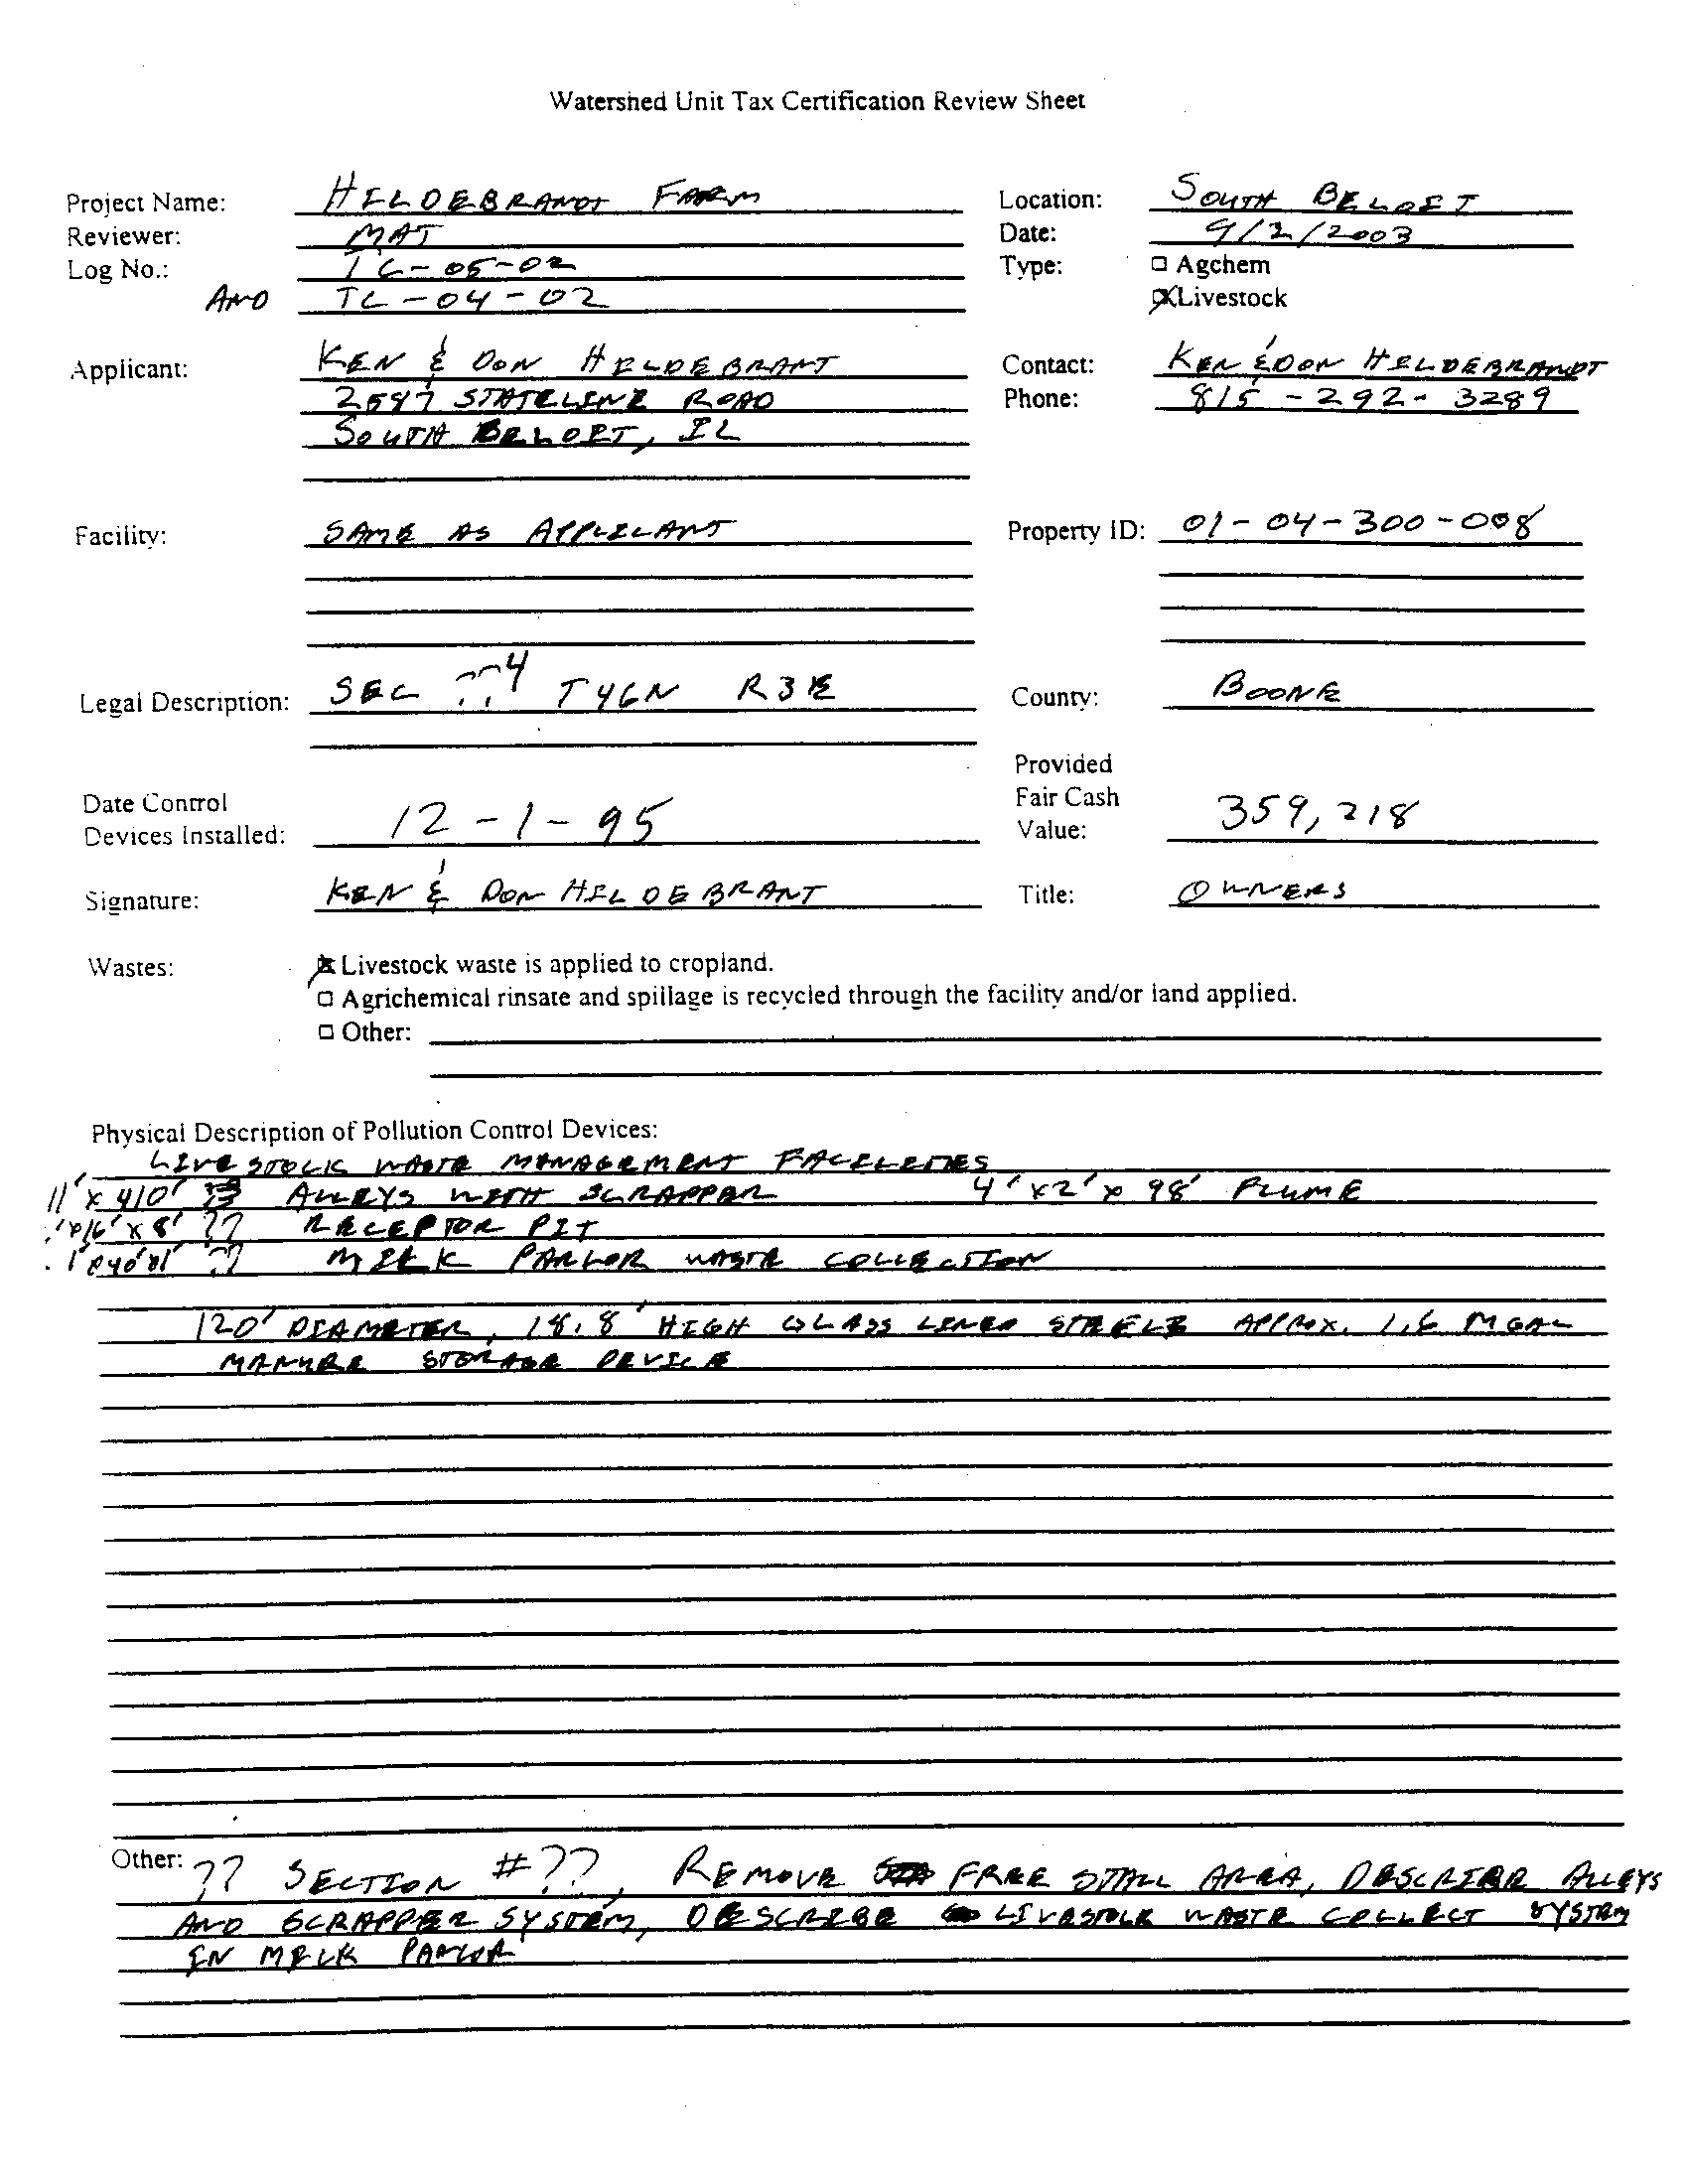 Watershed Unit Tax Certification Review Sheet
Project Name: HILDEBRANDT FARM Location: SOUTH BELOIT
Reviewer: MAT Date: 9/2/2003
Log No.: TC-05-02 Type: Agchem
AND TC-04-02 Livestock
Applicant: KEN & DON HILDEBRANT Contact: KEN & DON HILDEBRANDT
2597 STATELINE ROAD Phone: 815-292-3289
SOUTH BELOIT, IL
Facility: SAME AS APPLICANT Property ID: 01-04-300-008
Legal Description: SEC ?? 4 T46N R3E County: BOONE
Provided
Date Control Fair Cash
Devices Installed: 12-1-95 Value: 359,218
Signature: KEN & DON HILDEBRANT Title: OWNERS
Wastes: Livestock waste is applied to cropland.
Agrichemical rinsate and spillage is recycled through the facility and/or land applied.
Other:
Physical Description of Pollution Control Devices:
LIVESTOCK WASTE MANAGEMENT FACILITIES
11' x 410' ALLEYS WITH SCRAPPER 4' x 2' x 98' FLUME
x 16' x 8' ?? RECEPTOR PIT
?? MILK PARLOR WASTE COLLECTION
120' DIAMETER, 18.8' HIGH GLASS LINED STEELE APPROX. 1.6 MGAL
MANURE STORAGE DEVICE
Other: ?? SECTION #??, REMOVE FREE STALL AREA, DESCRIBE ALLEYS
AND SCRAPPER SYSTEM, DESCRIBE LIVESTOCK WASTE COLLECT SYSTEM
IN MILK PARLOR